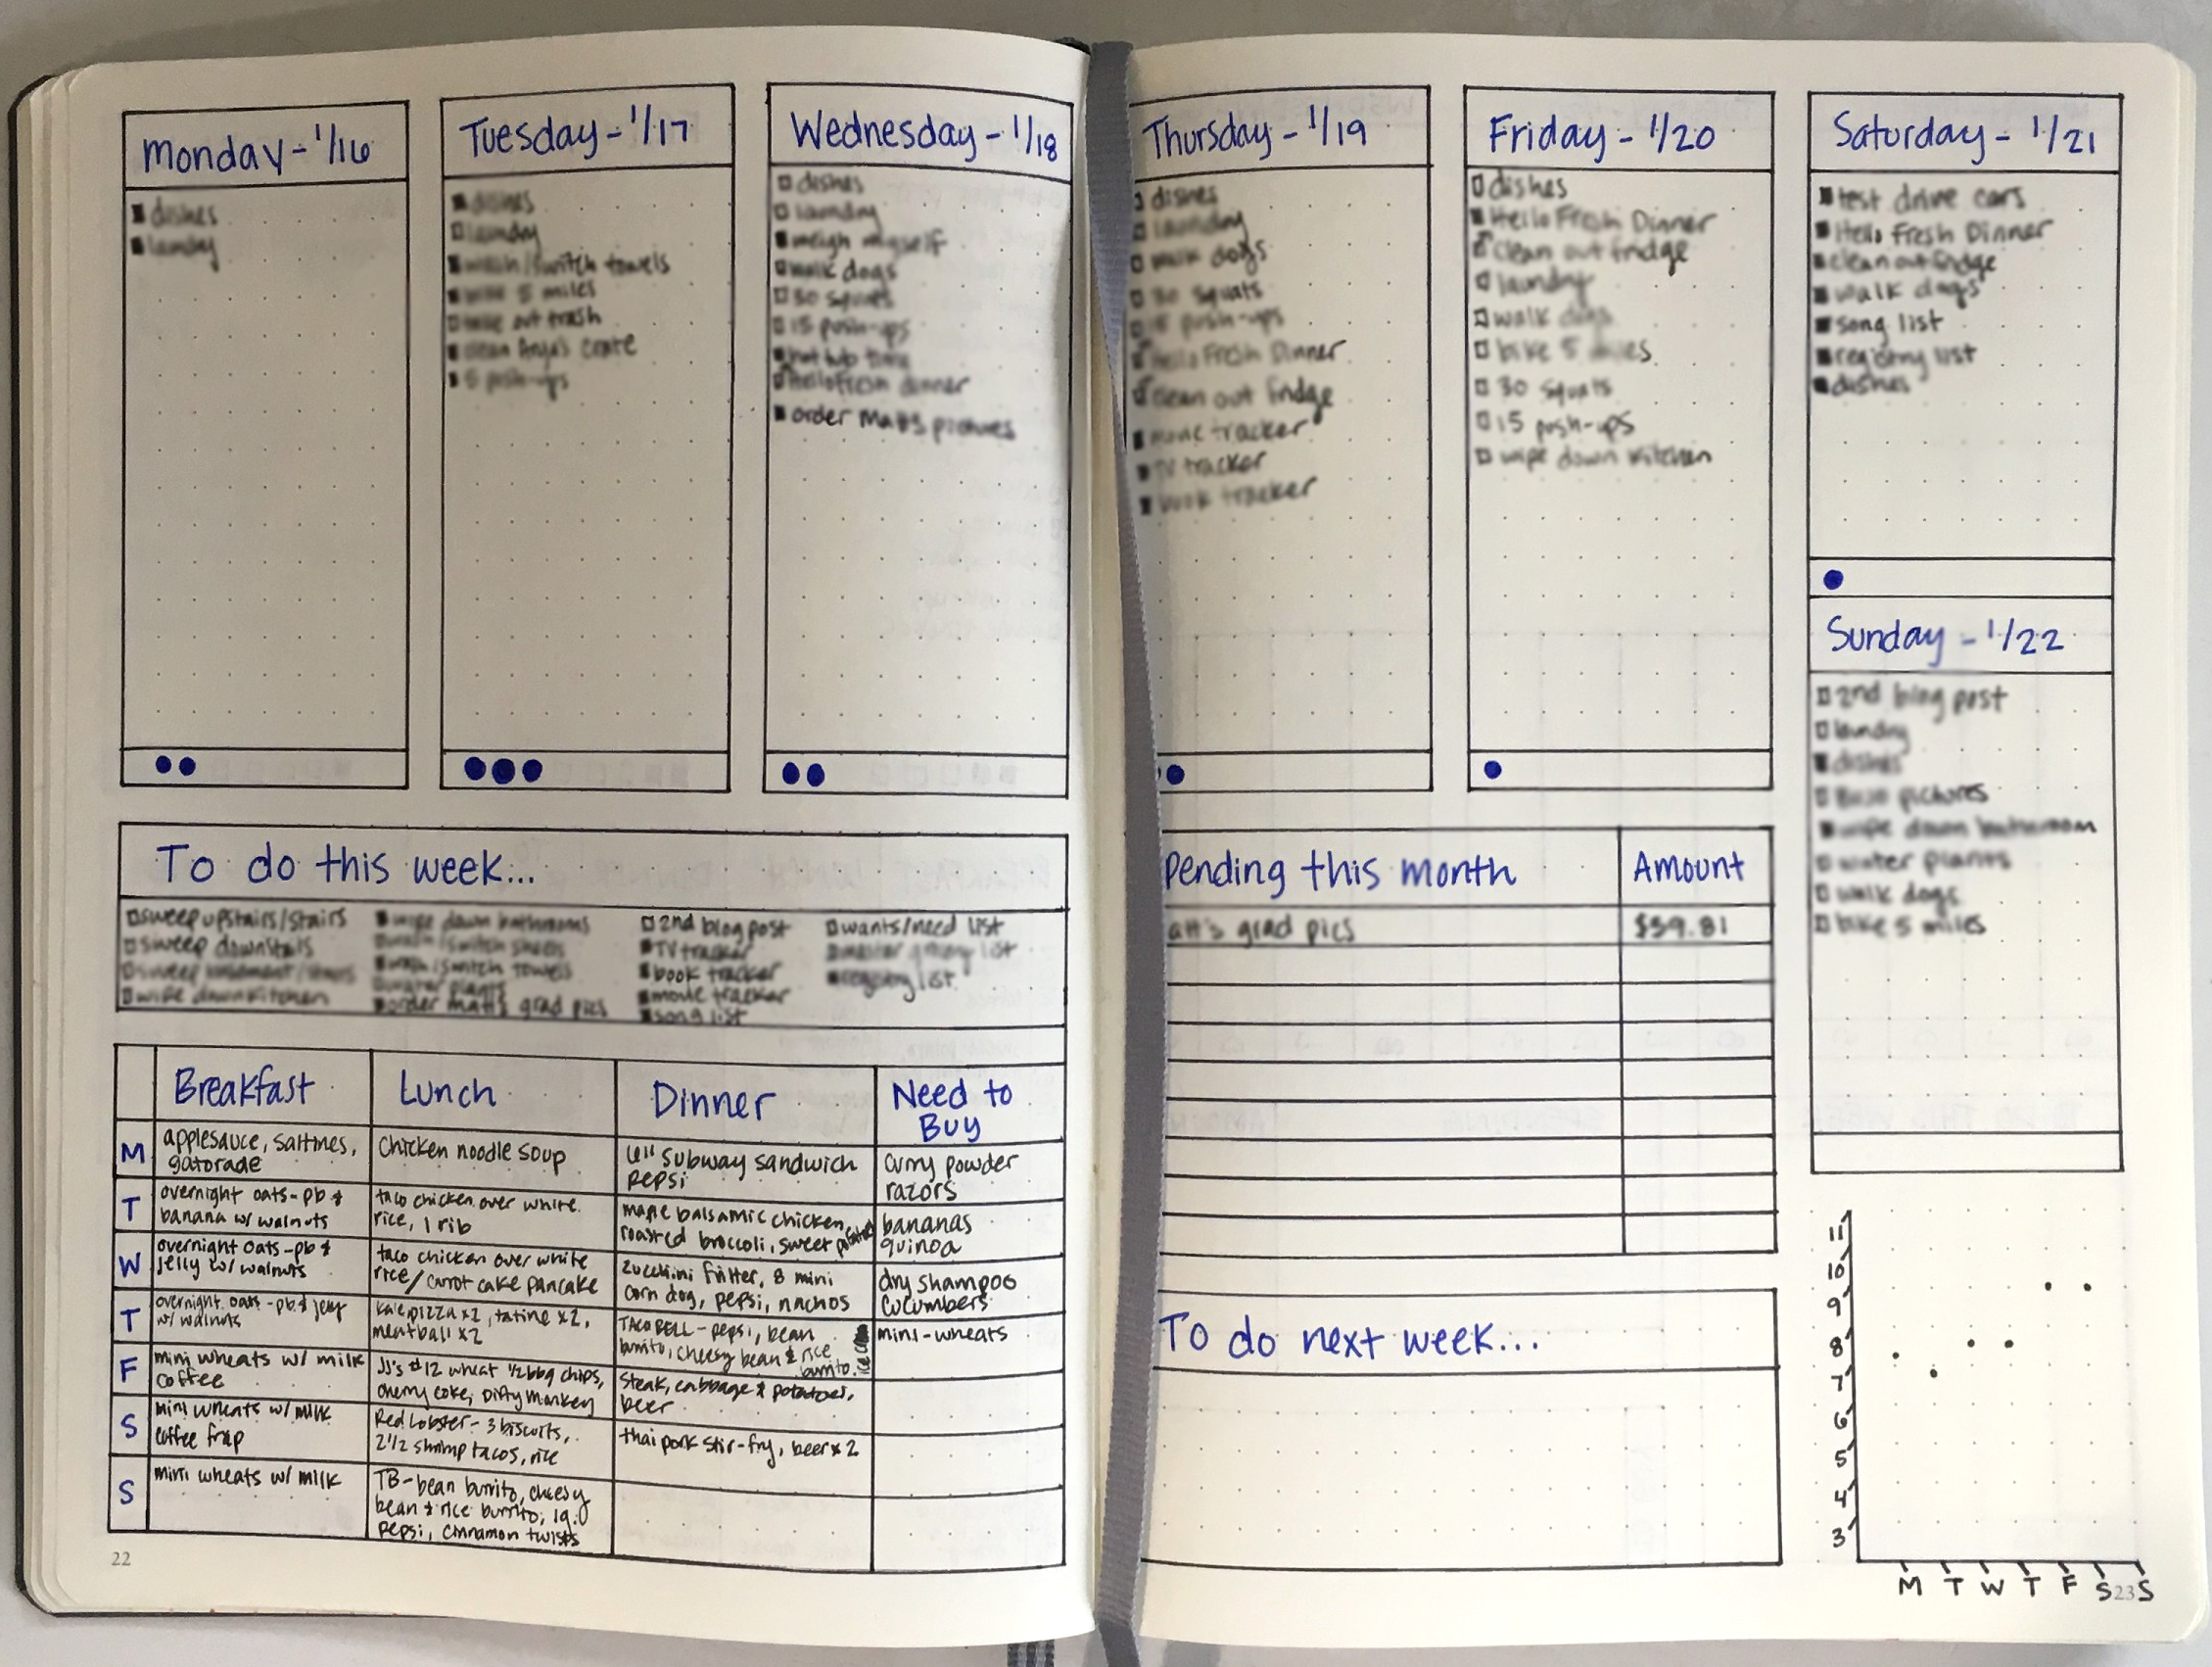 Monday - 1/16
dishes
laundry
Tuesday - 1/17
dishes
laundry
wash/switch towels
bike 5 miles
take out trash
clean Anja's crate
5 push-ups
Wednesday - 1/18
dishes
laundry
weigh myself
walk dogs
30 squats
15 push-ups
hot tub time
Hello Fresh dinner
order Matt's pictures
Thursday - 1/19
dishes
laundry
walk dogs
30 squats
15 push-ups
Hello Fresh Dinner
clean out fridge
movie tracker
TV tracker
book tracker
Friday - 1/20
dishes
Hello Fresh Dinner
clean out fridge
laundry
walk dogs
bike 5 miles
30 squats
15 push-ups
wipe down kitchen
Saturday - 1/21
test drive cars
Hello Fresh Dinner
clean out fridge
walk dogs
song list
registry list
dishes
Sunday - 1/22
2nd blog post
laundry
dishes
BuJo pictures
wipe down bathroom
water plants
walk dogs
bike 5 miles
To do this week...
sweep upstairs/stairs
sweep downstairs
sweep basement/stairs
wipe down kitchen
wipe down bathrooms
wash/switch sheets
wash/switch towels
water plants
order Matt's grad pics
2nd blog post
TV tracker
book tracker
movie tracker
song list
wants/need list
master grocery list
registry list
Breakfast Lunch Dinner Need to
Buy
M
applesauce, saltines,
gatorade
Chicken noodle soup
6" subway sandwich
pepsi
curry powder
razors
T
overnight oats - pb &
banana w/ walnuts
taco chicken over white
rice, 1 rib
maple balsamic chicken,
roasted broccoli, sweet potatoes
bananas
quinoa
W
overnight oats - pb &
jelly w/ walnuts
taco chicken over white
rice/carrot cake pancake
zucchini fritter, 8 mini
corn dog, pepsi, nachos
dry shampoo
cucumbers
T
overnight oats - pb & jelly
w/ walnuts
kale pizza x2, tatine x2,
meatball x2
TACO BELL - pepsi, bean
burrito, cheesy bean & rice
burrito.
ice cream
mini-wheats
F
mini wheats w/ milk
coffee
JJ's #12 wheat 1/2 bbq chips,
cherry coke, Dirty Monkey
steak, cabbage & potatoes,
beer
S
mini wheats w/ milk
coffee frap
Red Lobster - 3 biscuits,
2 1/2 shrimp tacos, rice
thai pork stir-fry, beer x 2
S
mini wheats w/ milk
TB - bean burrito, cheesy
bean & rice burrito, lg.
pepsi, cinnamon twists
22
pending this month Amount
att's grad pics $59.81
To do next week...
11
10
9
8
7
6
5
4
3
M T W T F S S
23